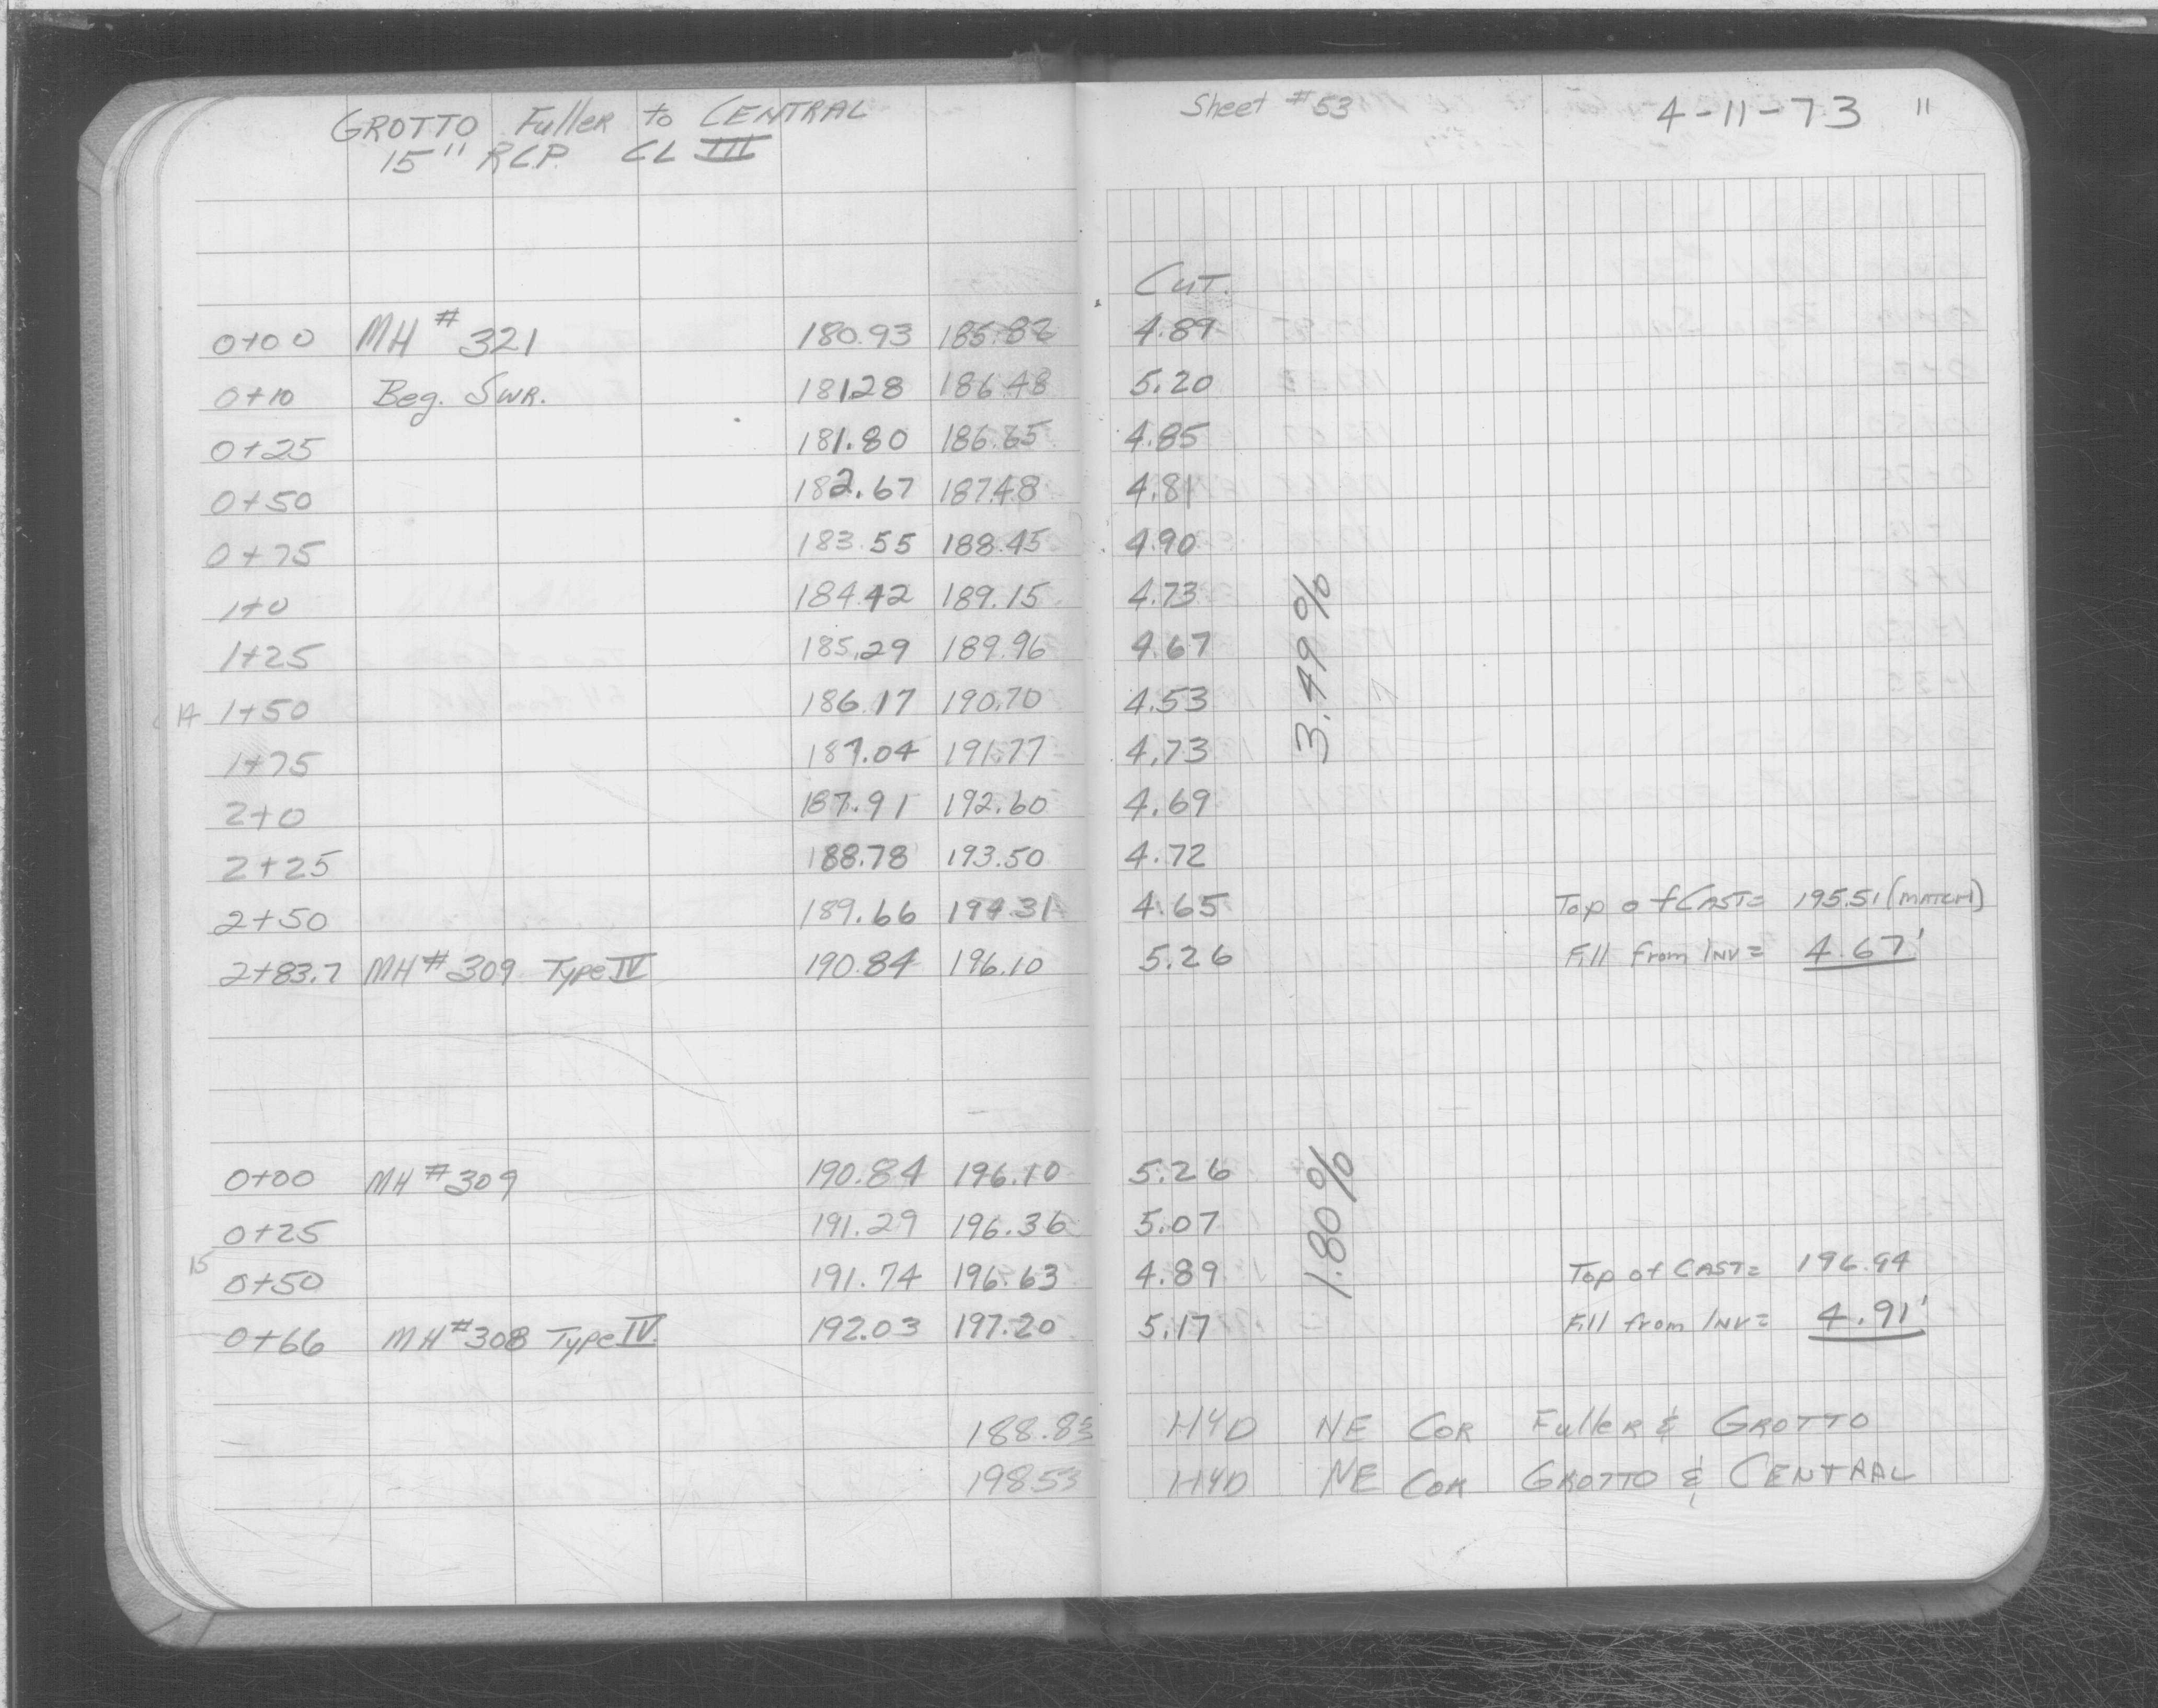 GROTTO Fuller to CENTRAL
15" RCP. CL III
Sheet #53
4-11-73 "
CUT.
0+00 MH # 321 180.93 185.82 4.89
0+10 Beg. SWR. 181.28 186.48 5.20
0+25 181.80 186.65 4.85
0+50 182.67 187.48 4.81
0+75 183.55 188.45 4.90
1+0 184.42 189.15 4.73
1+25 185.29 189.96 4.67
14 1+50 186.17 190.70 4.53
3.49%
1+75 187.04 191.77 4.73
2+0 187.91 192.60 4.69
2+25 188.78 193.50 4.72
2+50 189.66 194.31 4.65 Top of CAST= 195.51 (MATCH)
2+83.7 MH# 309 Type IV 190.84 196.10 5.26 Fill from INV= 4.67'
0+00 MH #309 190.84 196.10 5.26
0+25 191.29 196.36 5.07
1.80%
15 0+50 191.74 196.63 4.89 Top of CAST= 196.94
0+66 MH#308 Type IV 192.03 197.20 5.17 Fill from INV= 4.91'
188.83 HYD NE COR Fuller & GROTTO
198.53 HYD NE COR GROTTO & CENTRAL